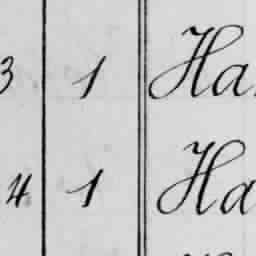 3 1 Ha
4 1 Ha